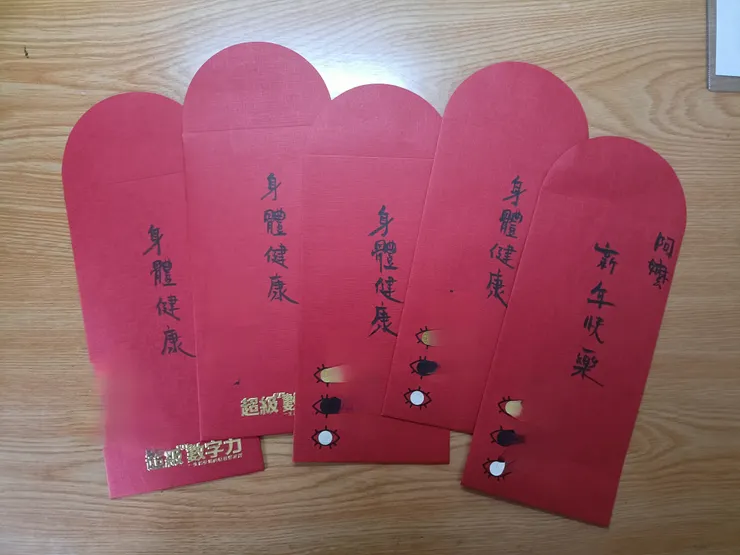 身體健康
超級數字力
身體健康
超級數
身體健康
身體健康
阿嬤
新年快樂